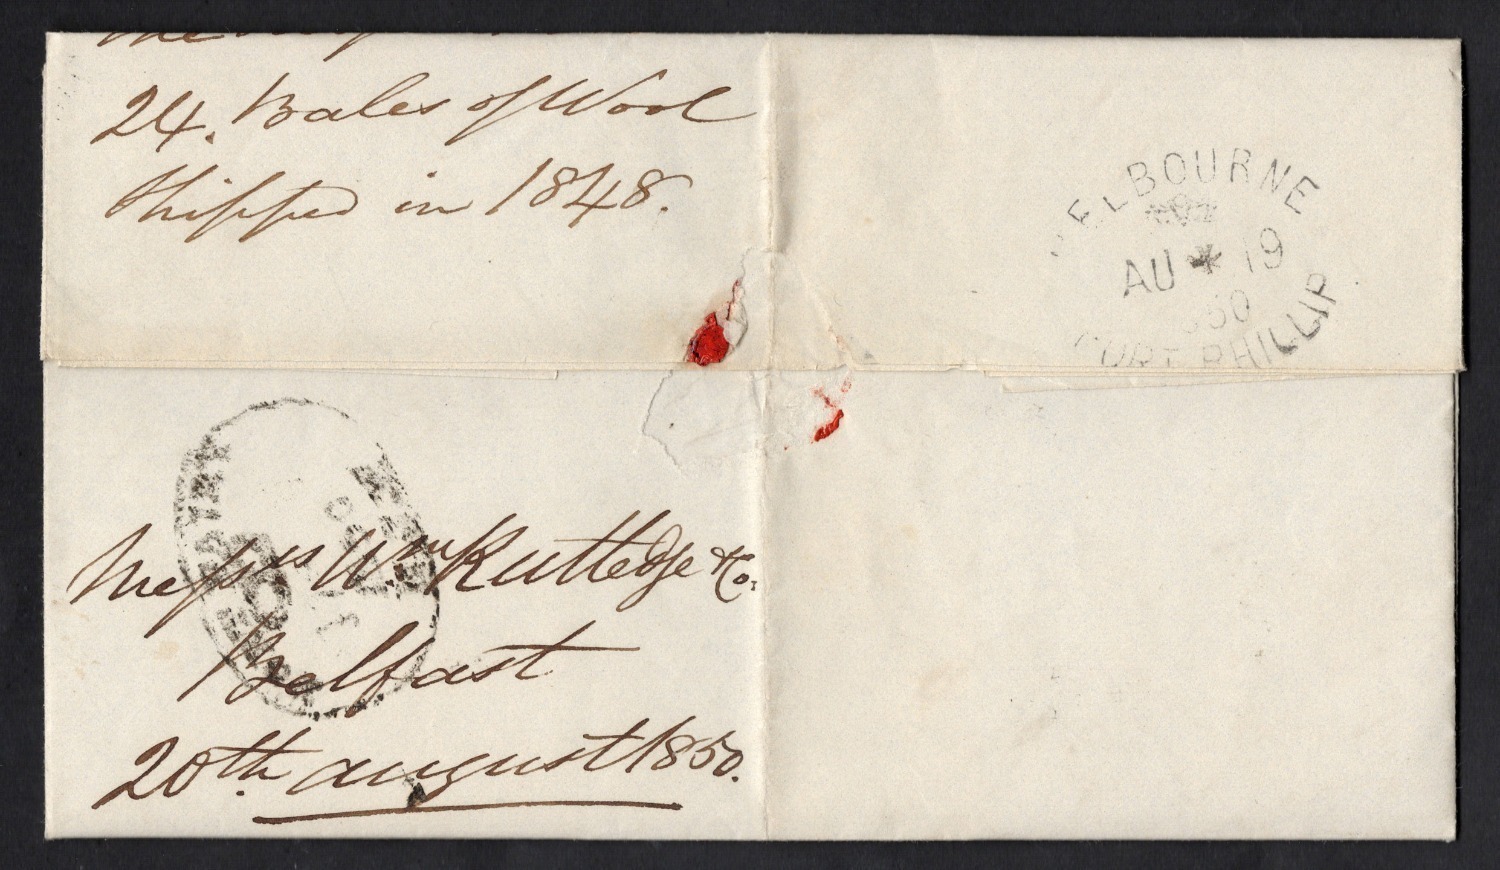 24. Bales of Wool
Shipped in 1848.
MELBOURNE
AU * 19
1850
PORT PHILLIP
Messrs Wm Rutledge & Co.
Belfast
20th August 1850.